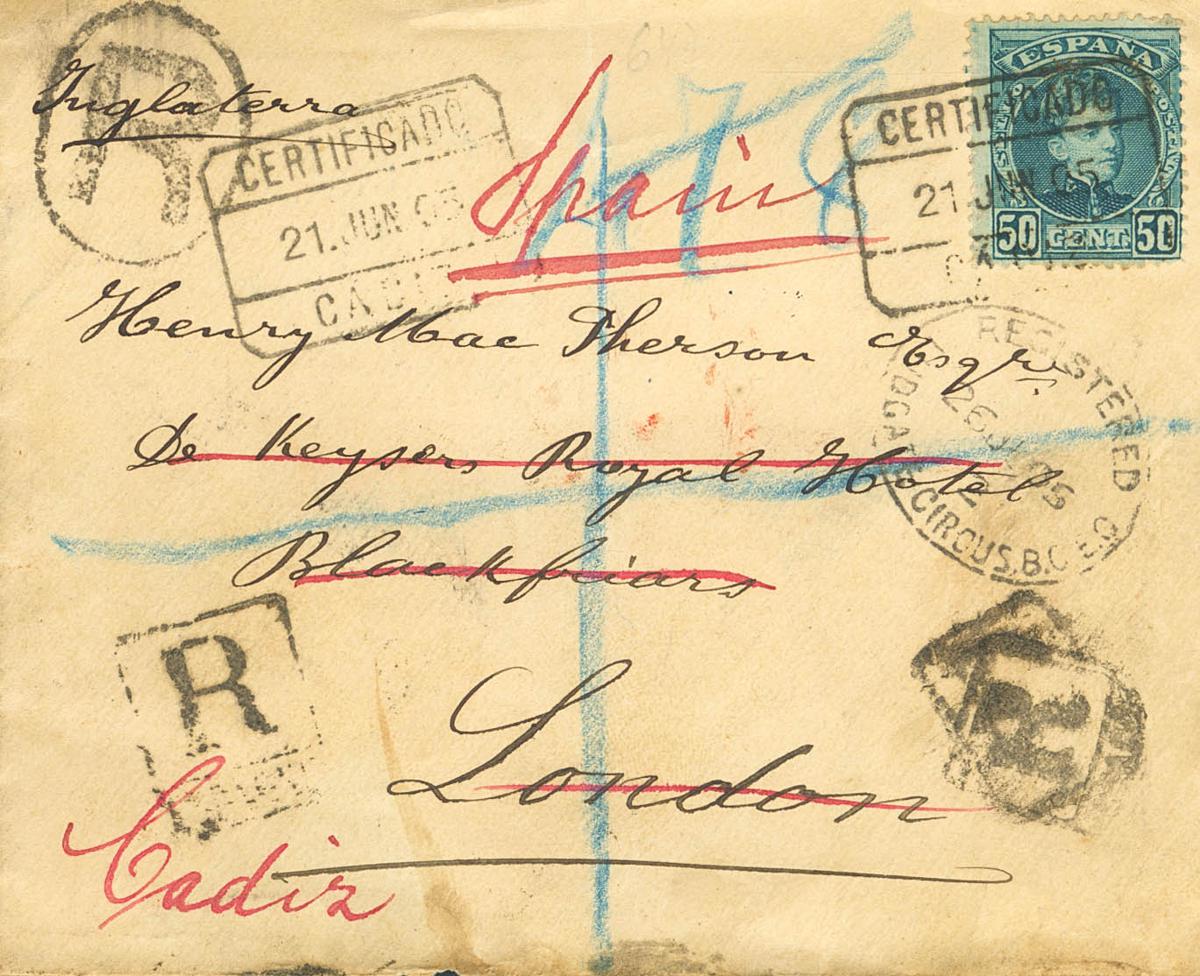 Inglaterra
R
CERTIFICADO
21.JUN 05
CADIZ
Spain
ESPAÑA
50 CENT. 50
CERTIFICADO
21.JUN 05
Henry Mac Pherson Esqre.
De Keysers Royal Hotel
Blackfriars
London
REGISTERED
26 JU 05
LUDGATE CIRCUS.B.O. E.C
R
R
Cadiz